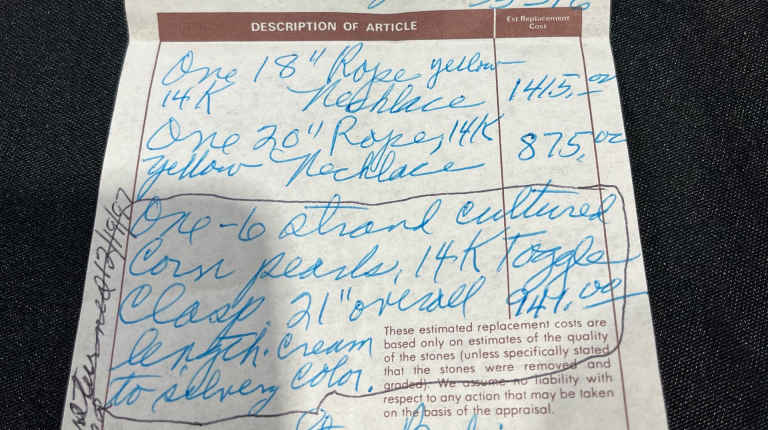 DESCRIPTION OF ARTICLE
Est Replacement
Cost
One 18" Rope yellow
14K Necklace 1415.00
One 20" Rope, 14K
yellow Necklace 875.00
One-6 strand cultured
Corn pearls, 14K Toggle
Clasp. 21" overall 941.00
length. Cream
to silvery color.
These estimated replacement costs are
based only on estimates of the quality
of the stones (unless specifically stated
that the stones were removed and
graded). We assume no liability with
respect to any action that may be taken
on the basis of the appraisal.